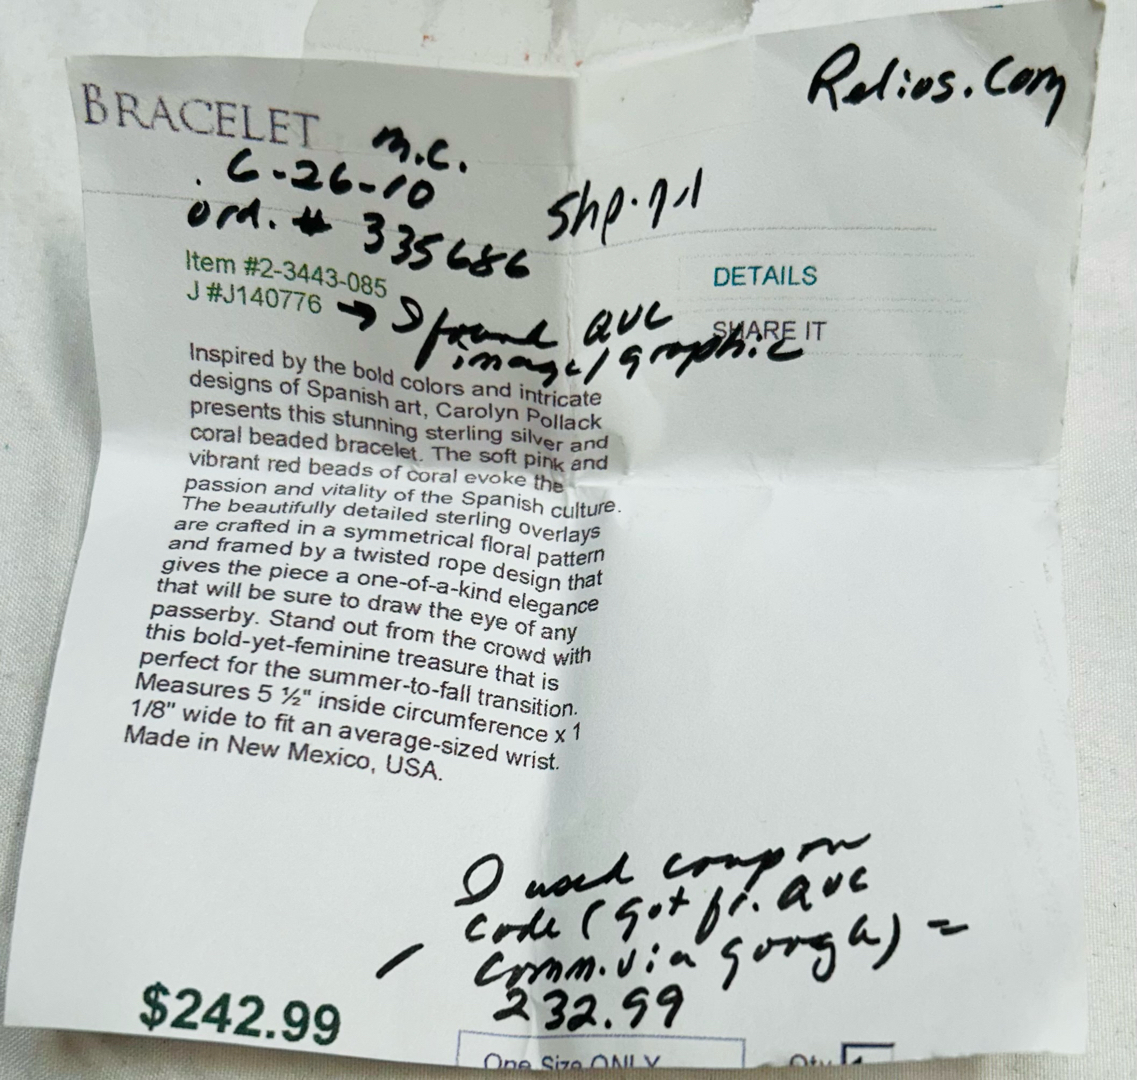 Relios.Com
BRACELET
M.C.
6-26-10
Shp. 7-1
ord. # 335686
Item #2-3443-085
DETAILS
J #J140776 → I found QVC
SHARE IT
image/graphic
Inspired by the bold colors and intricate
designs of Spanish art, Carolyn Pollack
presents this stunning sterling silver and
coral beaded bracelet. The soft pink and
vibrant red beads of coral evoke the
passion and vitality of the Spanish culture.
The beautifully detailed sterling overlays
are crafted in a symmetrical floral pattern
and framed by a twisted rope design that
gives the piece a one-of-a-kind elegance
that will be sure to draw the eye of any
passerby. Stand out from the crowd with
this bold-yet-feminine treasure that is
perfect for the summer-to-fall transition.
Measures 5 ½" inside circumference x 1
1/8" wide to fit an average-sized wrist.
Made in New Mexico, USA.
I used coupon
code (got fr. QVC
comm. via google) =
232.99
$242.99
One Size ONLY
Qty